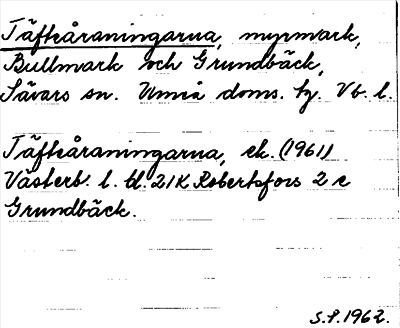 Täfteåraningarna, myrmark,
Bullmark och Grundbäck,
Sävars sn. Umeå doms. tg. Vb. l.
Täfteåraningarna, ek. (1961)
Västerb. l. bl. 21K Robertsfors 2 c
Grundbäck.
S.P. 1962.